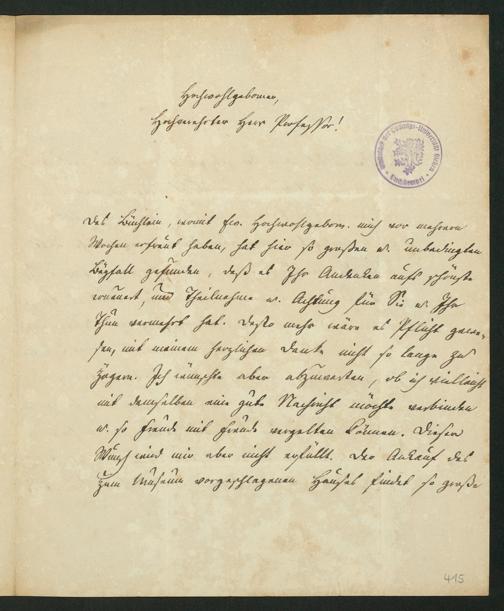 Hochwohlgeborner,
Hochverehrter Herr Professor!
Das Büchlein, womit Ew. Hochwohlgeborn. mich vor mehrern
Wochen erfreut haben, hat hier so großen u. unbedingten
Beyfall gefunden, daß es Ihr Andenken aufs schönste
erneuert und Theilnahme u. Achtung für Sie u. Ihr
Thun vermehrt hat. Desto mehr wäre es Pflicht gewe-
sen, mit meinem herzlichen Danke nicht so lange zu
zögern. Ich wünschte aber abzuwarten, ob ich vielleicht
mit demselben eine gute Nachricht möchte verbinden
u. so Freude mit Freude vergelten können. Dieser
Wunsch wird mir aber nicht erfüllt. Der Ankauf des
zum Museum vorgeschlagenen Hauses findet so große
415